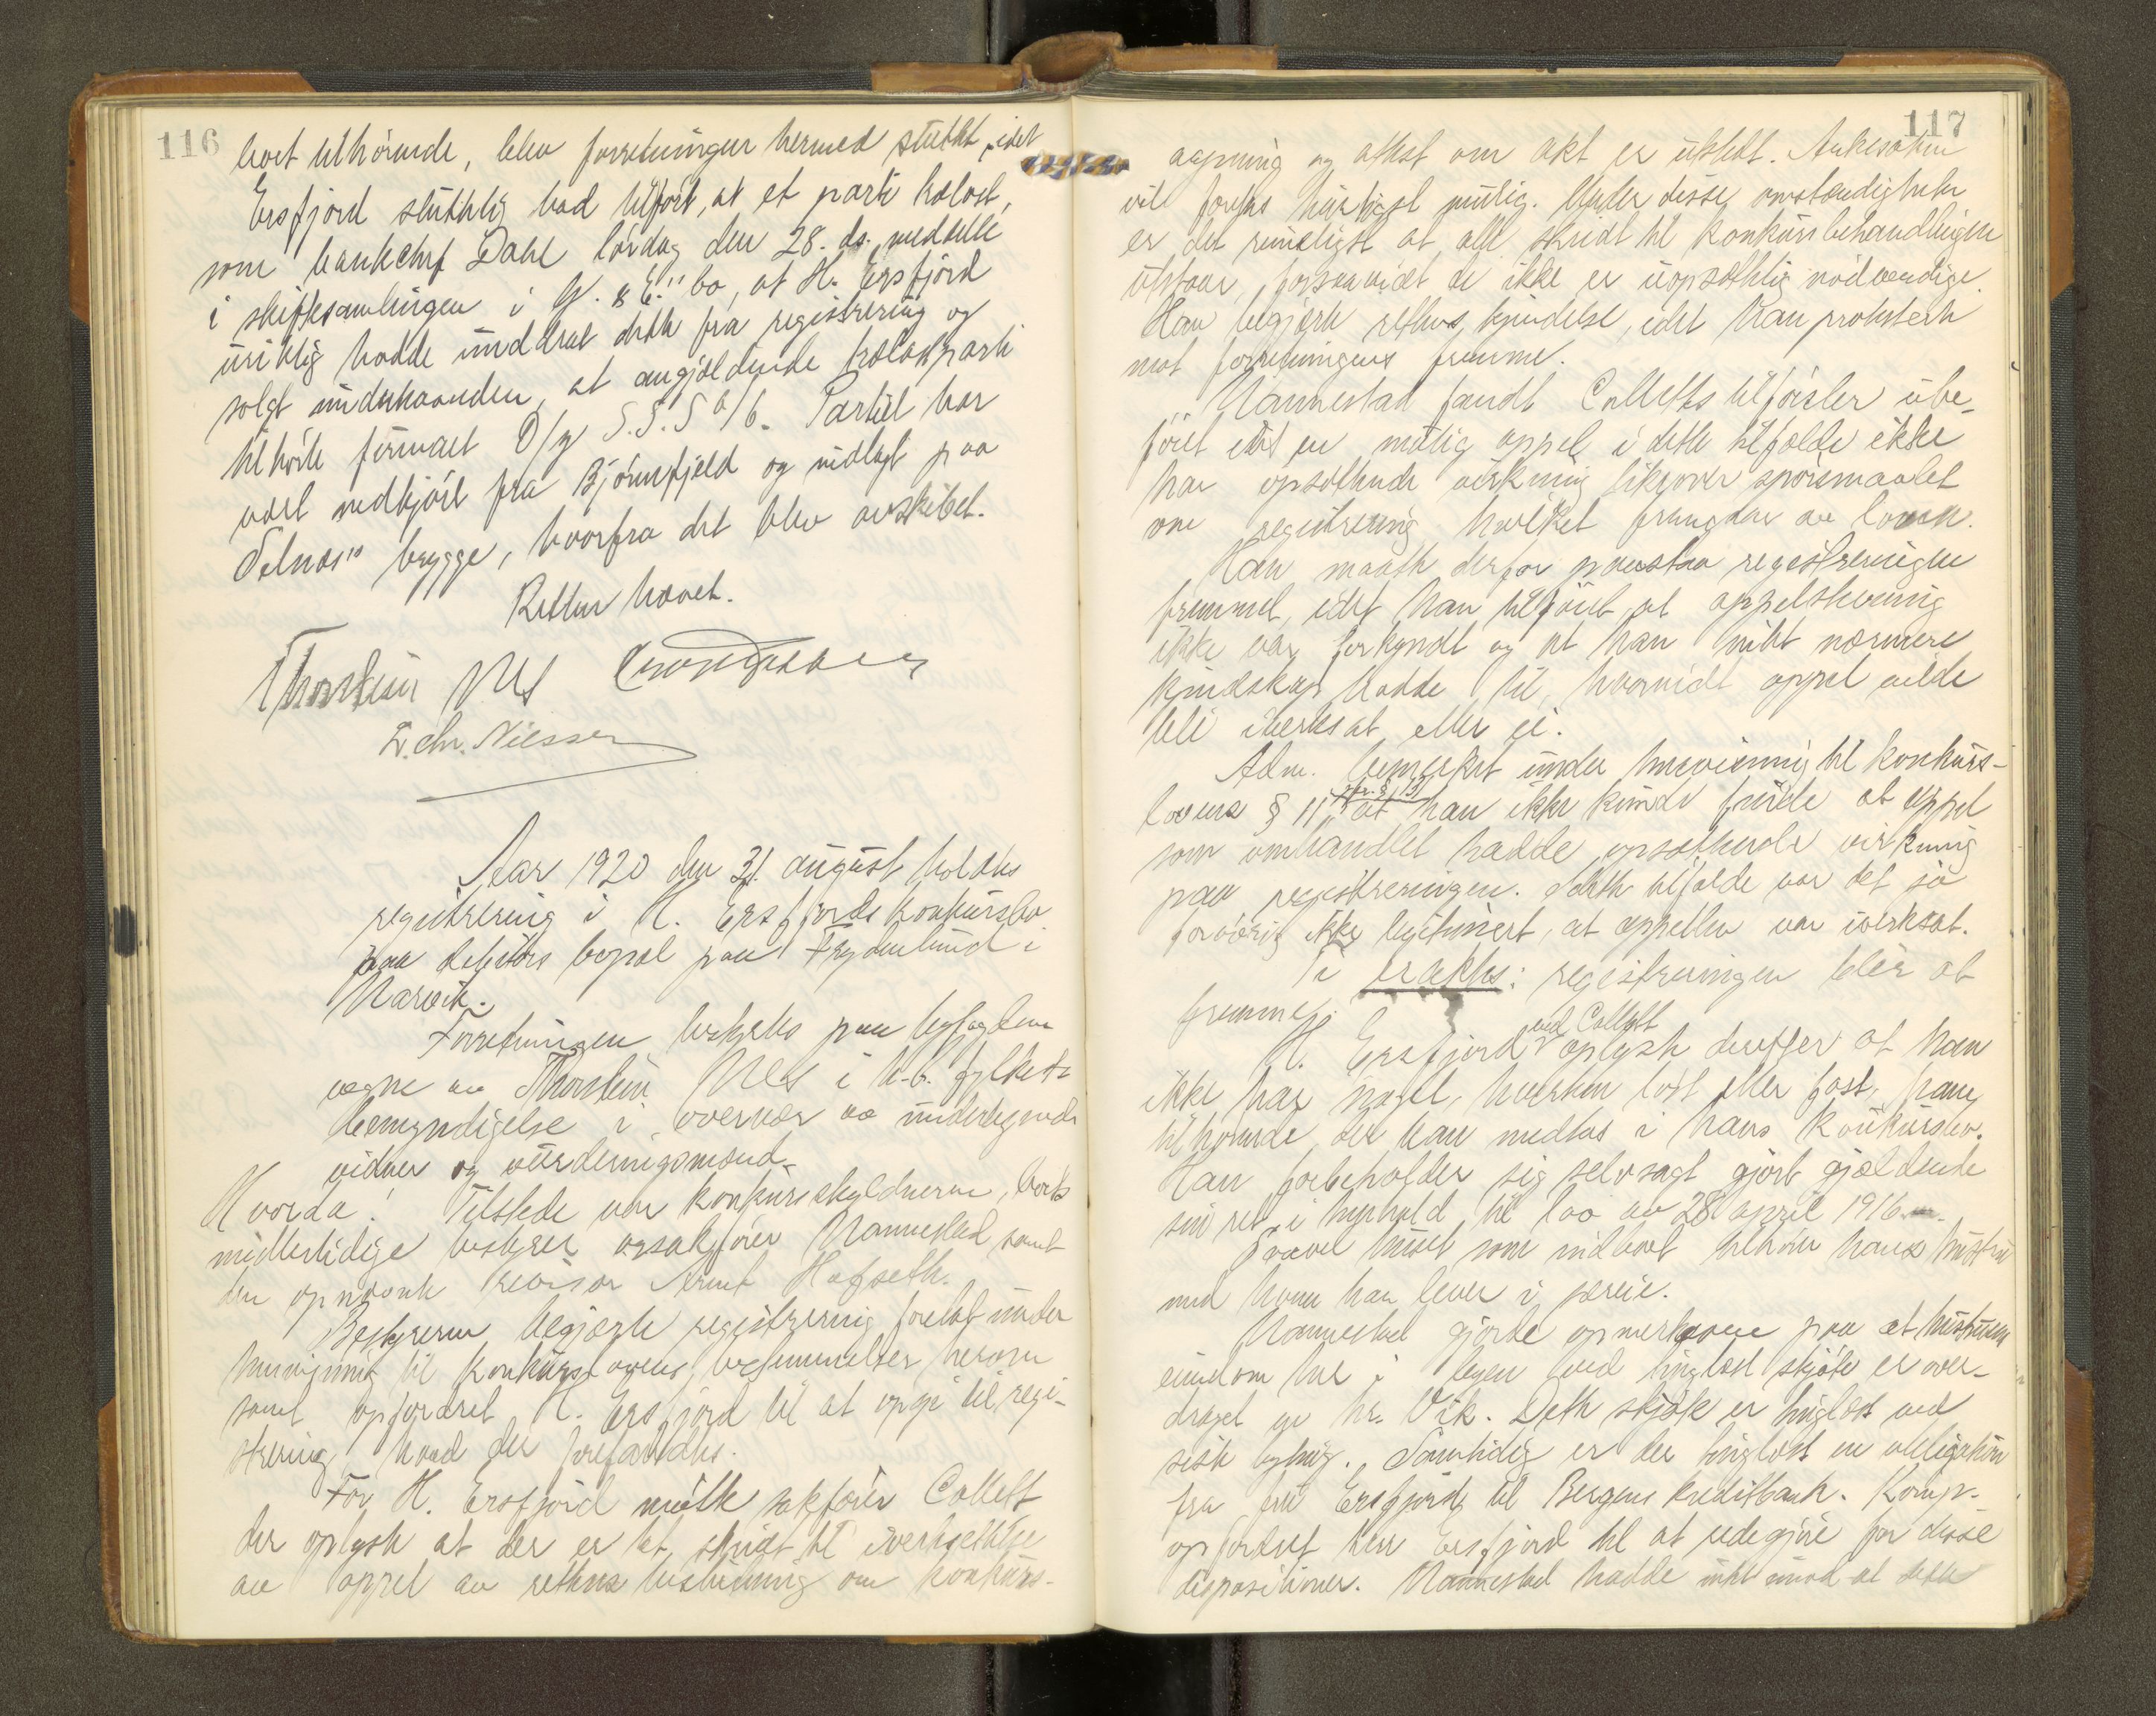 116
boet tilhørende, blev forretningen hermed sluttet, idet
Ersfjord sluttelig bad tilført, at et parti
som bankchef Dahl lørdag den 28. ds. meddelte
i skiftesamlingen i G. & E." bo, at H. Ersfjord
uriktig hadde unddrat dette fra registrering og
solgt underhaanden, at angjældende parti
tilhørte firmaet O/y S.S.S /6. Partiet har
vært nedkjørt fra Bjørnefjeld og nedlagt paa
brygge, hvorfra det blev avskibet.
Retten hævet.
Thorstein Nes
L. Chr. Nilssen
Aar 1920 den 31. august holdtes
registrering i H. Ersfjords konkursbo
paa debitors bopæl paa Frydenlund i
Narvik.
Forretningen bestyrtes paa byfogdens
vegne av Thorstein Nes i h.t. fylkets
bemyndigelse i overvær av undertegnede
vidner og vurderingsmænd.
Hvorda! Tilstede var konkursskyldneren, boets
midlertidige bestyrer, Nannestad samt
den opnævnte revisor Arnt Hofseth.
Bestyreren begjærte registrering foretat under
henvisning til konkurslovens bestemmelser herom
samt opfordret H. Ersfjord til at opgi til regi-
strering hvad der forefandtes.
For H. Ersfjord møtte sakfører Collett
der oplyste at der er tat skridt til iverksættelse
av appel av rettens beslutning om konkurs-
117
aapning og attest om akt er utstedt. Ankesaken
vil foretas hurtigst mulig. Under disse omstændigheter
er det rimeligst at alle skridt til konkursbehandlingen
utstaar, forsaavidt de ikke er uopsættelig nødvendige.
Han begjærte rettens kjendelse, idet han protesterte
mot forretningens fremme.
Nannestad fandt Colletts tilførsler ube-
føiet idet en mulig appel i dette tilfælde ikke
har opsættende virkning likeover spørsmaalet
om registrering hvilket fremgaar av loven.
Han maatte derfor paastaa registreringen
fremmet, idet han tilføiet at appelstevning
ikke var forkyndt og at han intet nærmere
kjendskap hadde til, hvorvidt appel vilde
bli iverksat eller ei.
Adm. bemerket under henvisning til konkurs-
lovens § 11 jfr. § 131 at han ikke kunde finde at appel
som omhandlet hadde opsættende virkning
paa registreringen. I dette tilfælde var det jo
forøvrig ikke legitimert, at appellen var iverksat.
Ti eragtes: registreringen blir at
fremme.
H. Ersfjord ved Collett oplyste derefter at han
ikke har noget, hverken løst eller fast, ham
tilhørende der kan medtas i hans konkursbo.
Han forbeholder sig selvsagt gjort gjældende
sin ret i henhold til lov av 28 april 1916.
Saavel huset som indboet tilhører hans hustru
med hvem han lever i særeie.
Nannestad gjorde opmerksom paa at hustruens
eiendom her i byen ved tinglæst skjøte er over-
draget av hr. Vik. Dette skjøte er tinglæst ved
siste bything. Samtidig er der tinglæst en obligation
fra fru Ersfjord til Bergens kreditbank. Komp.
opfordret herr Ersfjord til at redegjøre for disse
dispositioner. Nannestad hadde intet imod at dette